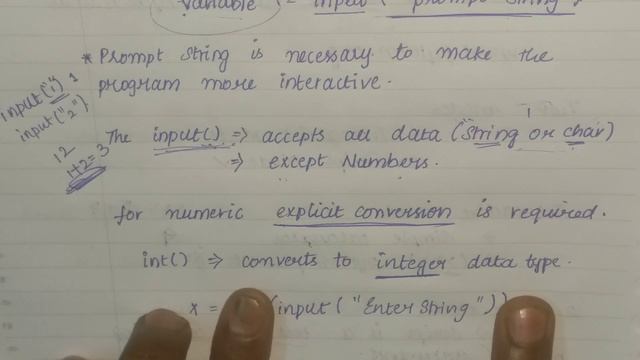 Variable = input ( "prompt string"
* Prompt String is necessary to make the
program more interactive.
input("1") 1
input("2")
12
1+2=3
The input() => accepts all data (String or char)
=> except Numbers.
for numeric explicit conversion is required.
int() => converts to integer data type.
x = (input ( "Enter String" ))